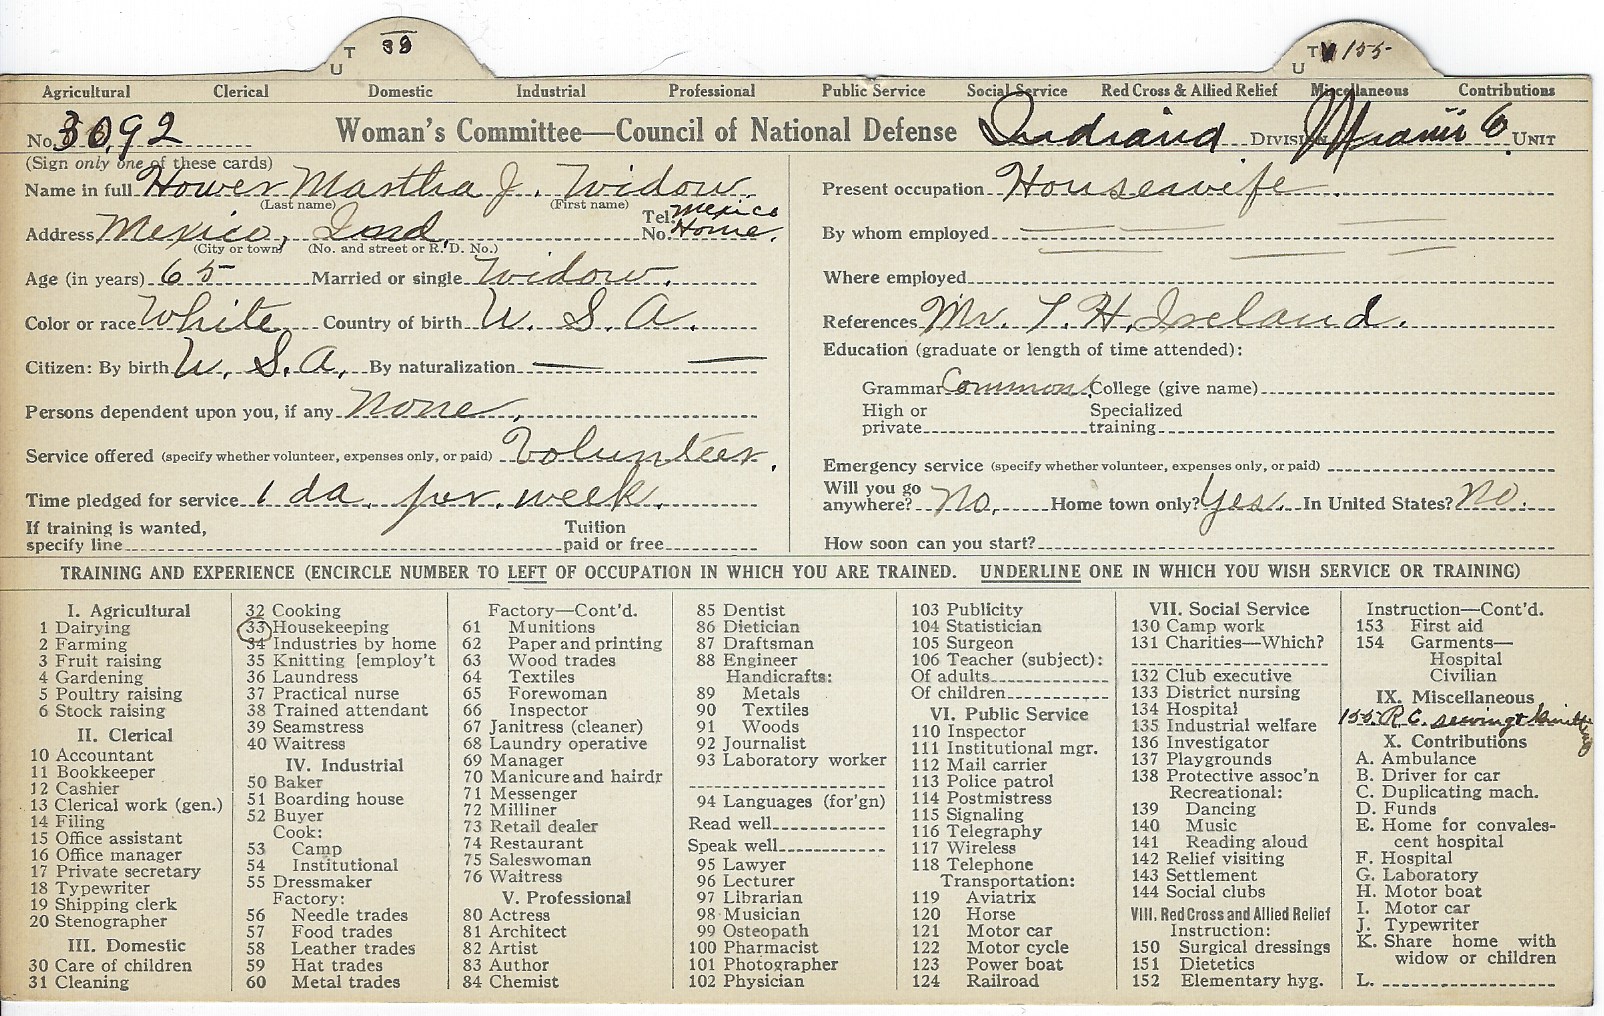 T 39
U
T V 155
U
Agricultural Clerical Domestic Industrial Professional Public Service Social Service Red Cross & Allied Relief Miscellaneous Contributions
No. 3092 Woman's Committee—Council of National Defense Indiana DIVISION Miami Co. UNIT
(Sign only one of these cards)
Name in full Hower Martha J. Widow
(Last name) (First name)
Address Mexico, Ind. Tel. No. Mexico Home.
(City or town) (No. and street or R. D. No.)
Age (in years) 65 Married or single Widow.
Color or race White Country of birth U. S. A.
Citizen: By birth U. S. A. By naturalization
Persons dependent upon you, if any None.
Service offered (specify whether volunteer, expenses only, or paid) Volunteer.
Time pledged for service 1 da. per. week.
If training is wanted, specify line Tuition paid or free
Present occupation Housewife.
By whom employed
Where employed
References Mr. T. H. Ireland.
Education (graduate or length of time attended):
Grammar Common. College (give name)
High or private Specialized training
Emergency service (specify whether volunteer, expenses only, or paid)
Will you go anywhere? No. Home town only? Yes. In United States? No.
How soon can you start?
TRAINING AND EXPERIENCE (ENCIRCLE NUMBER TO LEFT OF OCCUPATION IN WHICH YOU ARE TRAINED. UNDERLINE ONE IN WHICH YOU WISH SERVICE OR TRAINING)
I. Agricultural
1 Dairying
2 Farming
3 Fruit raising
4 Gardening
5 Poultry raising
6 Stock raising
II. Clerical
10 Accountant
11 Bookkeeper
12 Cashier
13 Clerical work (gen.)
14 Filing
15 Office assistant
16 Office manager
17 Private secretary
18 Typewriter
19 Shipping clerk
20 Stenographer
III. Domestic
30 Care of children
31 Cleaning
32 Cooking
33 Housekeeping
34 Industries by home
35 Knitting [employ't
36 Laundress
37 Practical nurse
38 Trained attendant
39 Seamstress
40 Waitress
IV. Industrial
50 Baker
51 Boarding house
52 Buyer
Cook:
53 Camp
54 Institutional
55 Dressmaker
Factory:
56 Needle trades
57 Food trades
58 Leather trades
59 Hat trades
60 Metal trades
Factory—Cont'd.
61 Munitions
62 Paper and printing
63 Wood trades
64 Textiles
65 Forewoman
66 Inspector
67 Janitress (cleaner)
68 Laundry operative
69 Manager
70 Manicure and hairdr
71 Messenger
72 Milliner
73 Retail dealer
74 Restaurant
75 Saleswoman
76 Waitress
V. Professional
80 Actress
81 Architect
82 Artist
83 Author
84 Chemist
85 Dentist
86 Dietician
87 Draftsman
88 Engineer
Handicrafts:
89 Metals
90 Textiles
91 Woods
92 Journalist
93 Laboratory worker
94 Languages (for'gn)
Read well
Speak well
95 Lawyer
96 Lecturer
97 Librarian
98 Musician
99 Osteopath
100 Pharmacist
101 Photographer
102 Physician
103 Publicity
104 Statistician
105 Surgeon
106 Teacher (subject):
Of adults
Of children
VI. Public Service
110 Inspector
111 Institutional mgr.
112 Mail carrier
113 Police patrol
114 Postmistress
115 Signaling
116 Telegraphy
117 Wireless
118 Telephone
Transportation:
119 Aviatrix
120 Horse
121 Motor car
122 Motor cycle
123 Power boat
124 Railroad
VII. Social Service
130 Camp work
131 Charities—Which?
132 Club executive
133 District nursing
134 Hospital
135 Industrial welfare
136 Investigator
137 Playgrounds
138 Protective assoc'n
Recreational:
139 Dancing
140 Music
141 Reading aloud
142 Relief visiting
143 Settlement
144 Social clubs
VIII. Red Cross and Allied Relief
Instruction:
150 Surgical dressings
151 Dietetics
152 Elementary hyg.
Instruction—Cont'd.
153 First aid
154 Garments—
Hospital
Civilian
IX. Miscellaneous
155 R. C. sewing & knitting
X. Contributions
A. Ambulance
B. Driver for car
C. Duplicating mach.
D. Funds
E. Home for convales-
cent hospital
F. Hospital
G. Laboratory
H. Motor boat
I. Motor car
J. Typewriter
K. Share home with
widow or children
L.